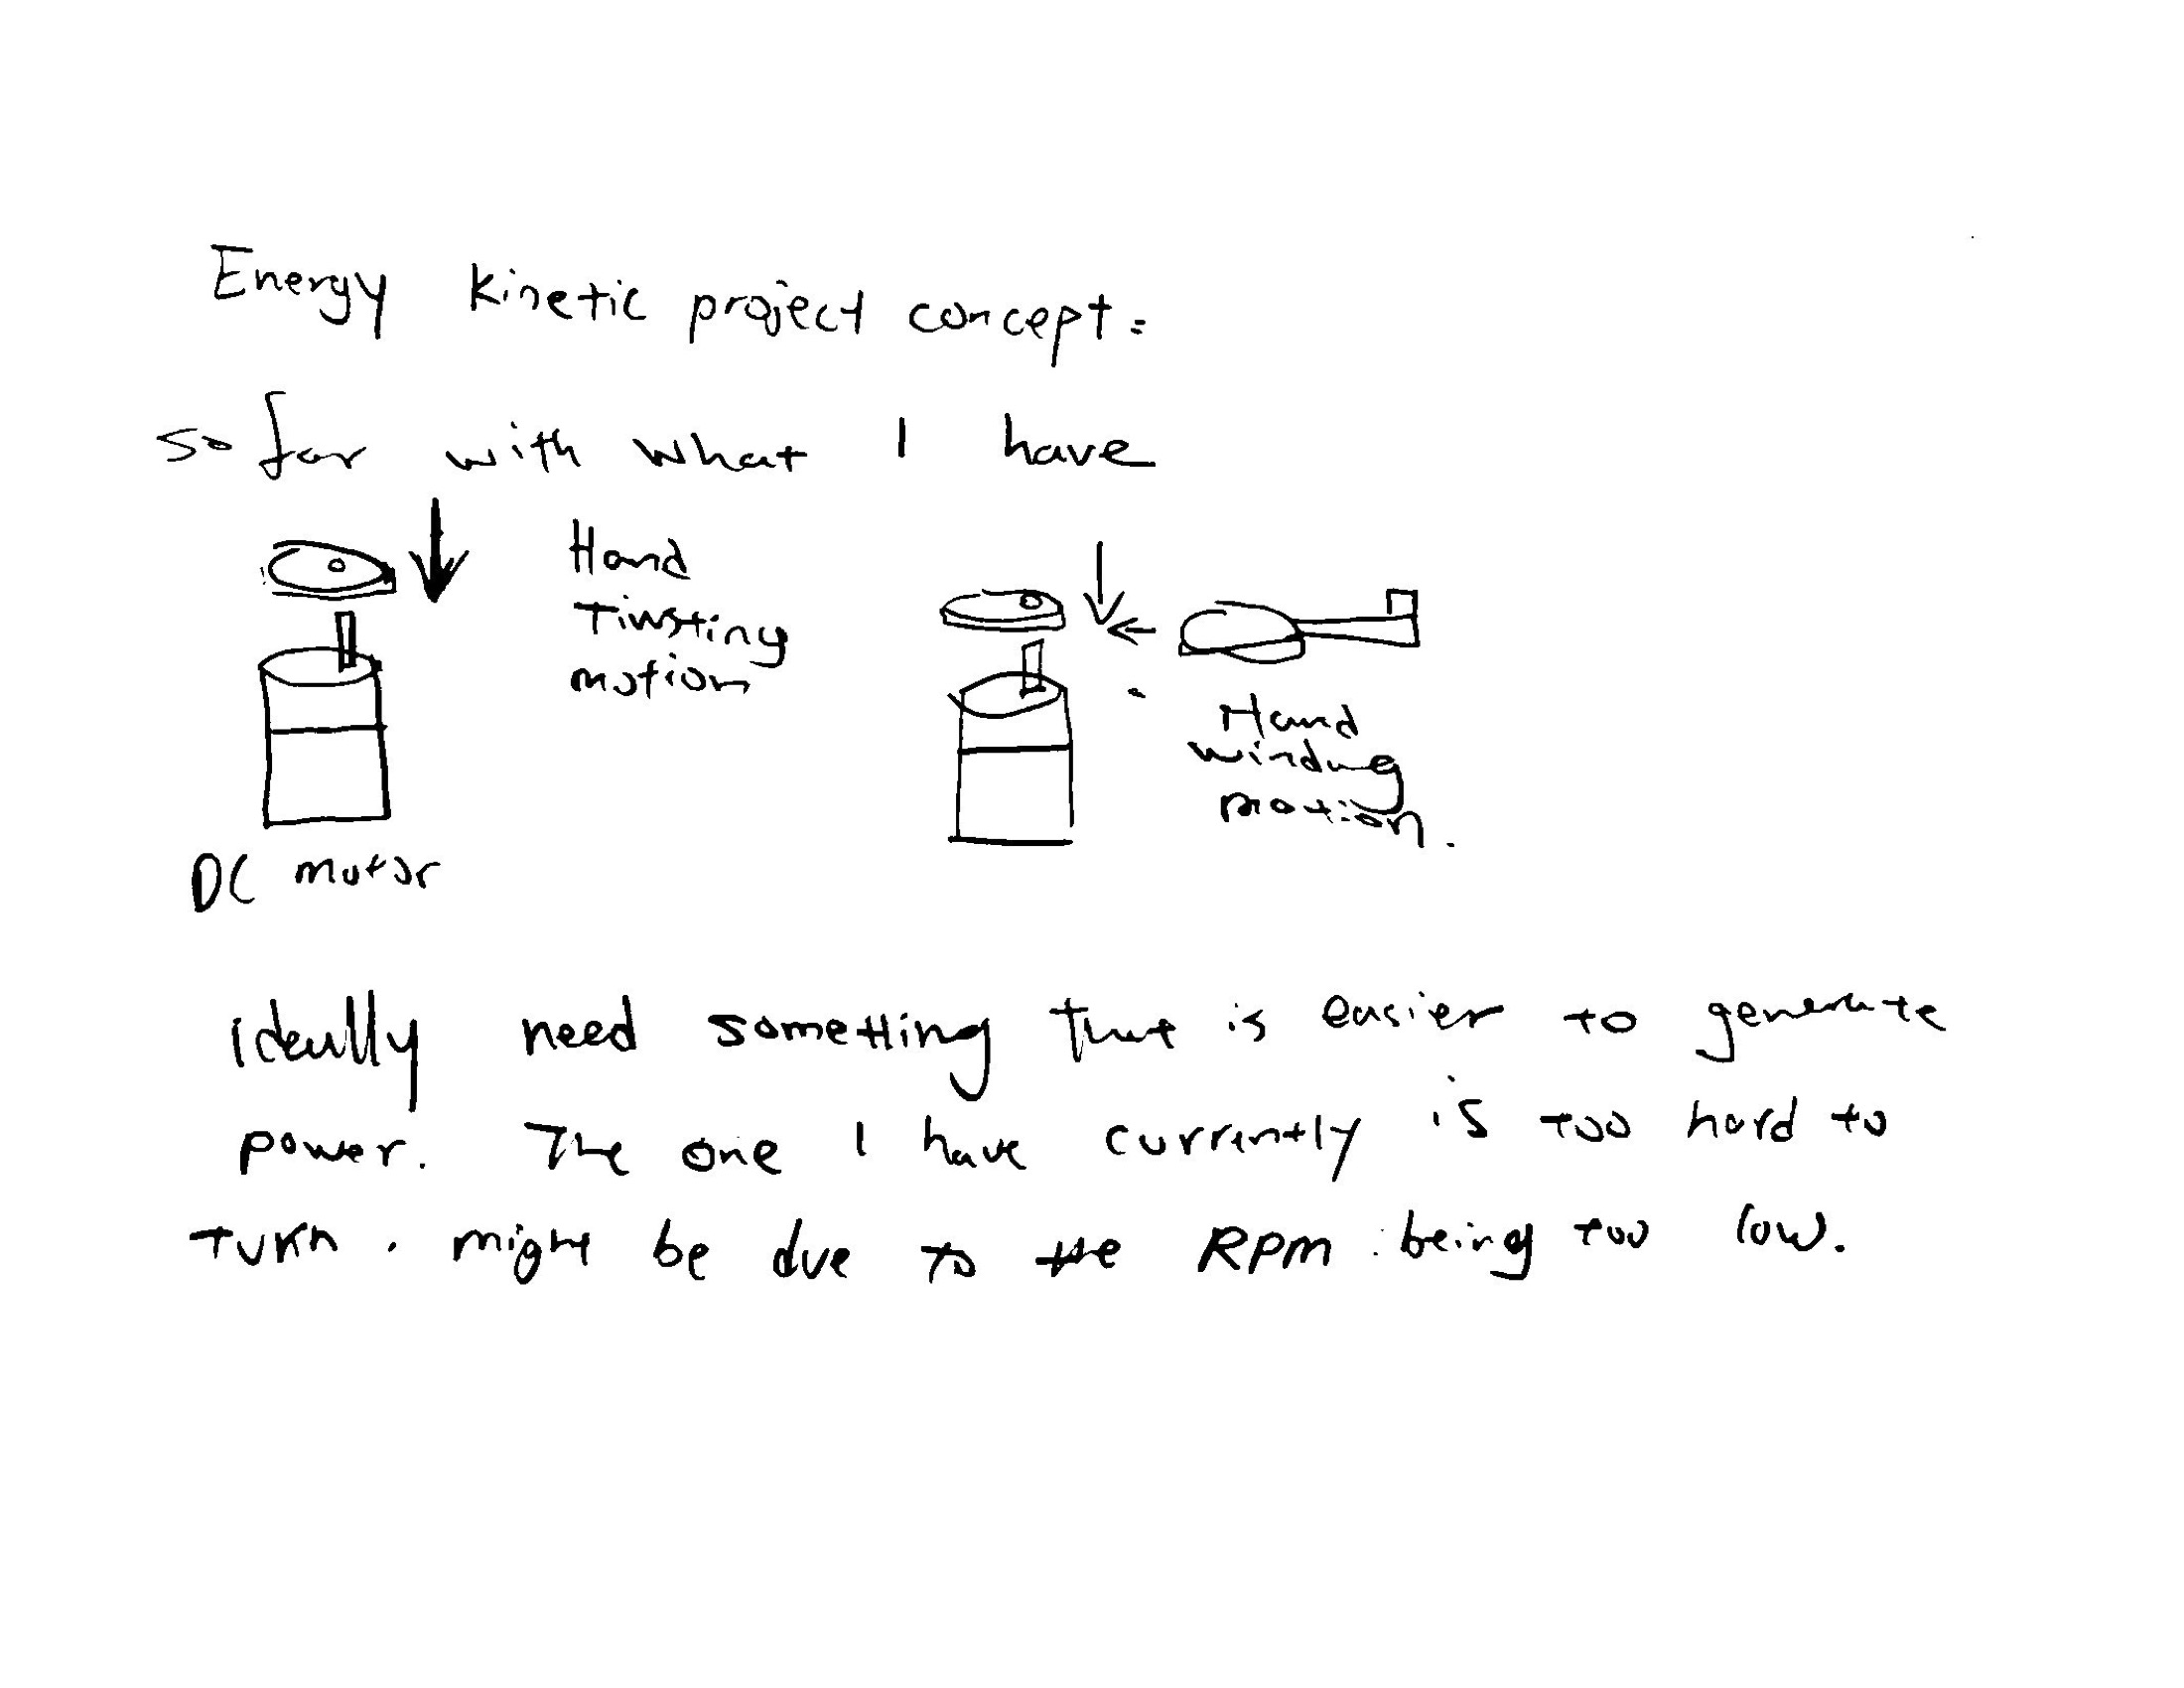 Energy kinetic project concept:
so far with what I have
Hand
Tiwsting
motion
Hand
winding
motion.
DC motor
ideally need something that is easier to generate
power. The one I have currently is too hard to
turn. might be due to the RPM being too low.